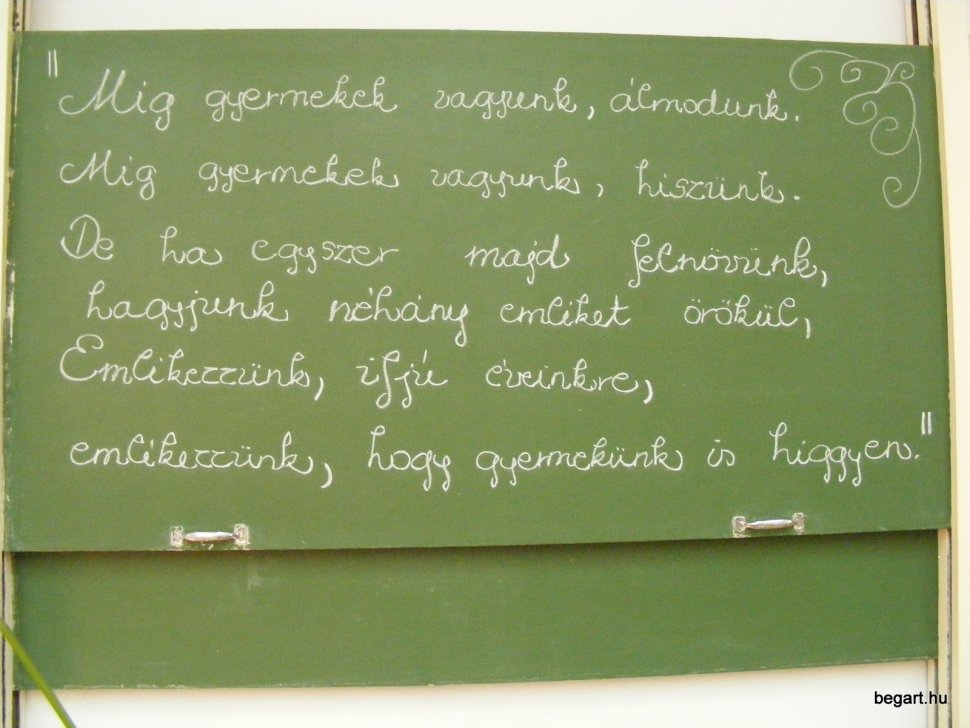 "Mig gyermekek vagyunk, álmodunk.
Mig gyermekek vagyunk, hiszünk.
De ha egyszer majd felnövünk,
hagyjunk néhány emléket örökül,
Emlékezzünk, ifjú éveinkre,
emlékezzünk, hogy gyermekünk is higgyen."
begart.hu